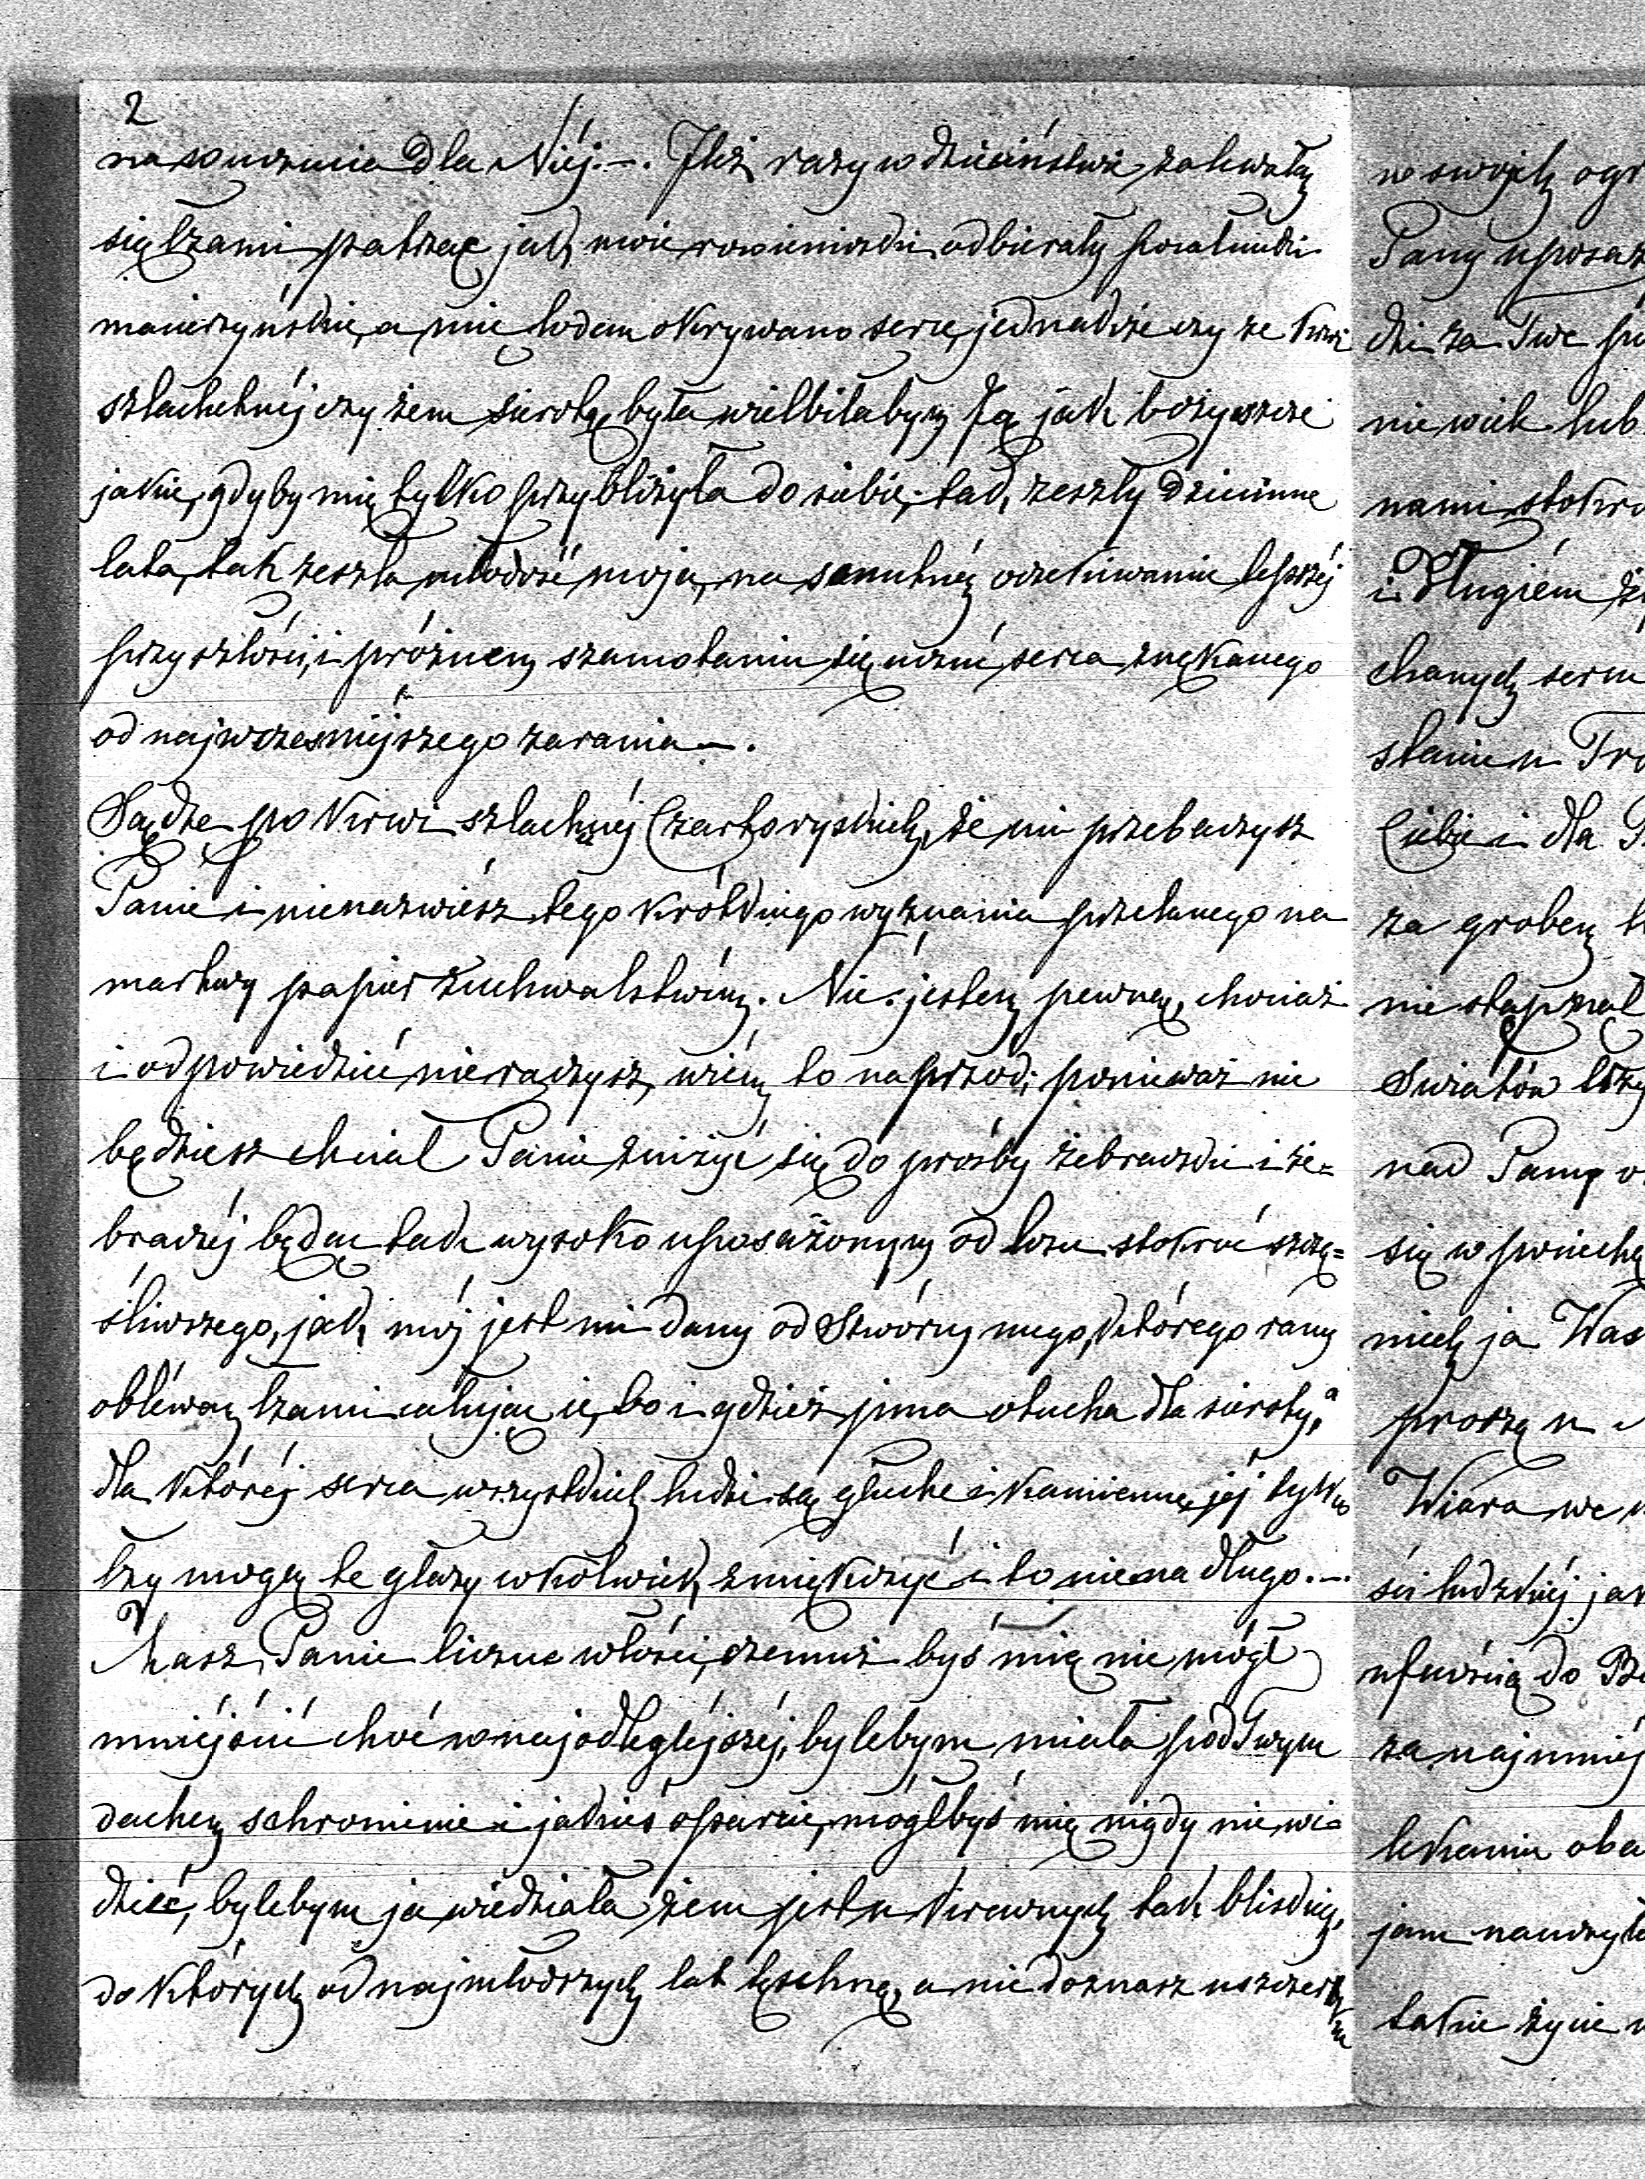 2
na uczucia dla Niéj.—. Ileż razy w dzieciństwie zalewały
się łzami patrząc jak mnie rowieniczki odbierały pocałunki
macierzyńskie, a mnie lodem okrywano serce, jednakże czy ze krwi
szlachetnéj czy żem sierotą była wielbiłabym Ją jak bożyszcze
jakie, gdyby mię tylko przybliżyła do siebie; tak zeszły dziecinne
lata, tak zeszła młodość moja, na smutném oczekiwaniu lepszéj
przyszłości, i próżnem szamotaniu się uczuć serca znękanego
od najwcześniéjszego zarania—.
Sądzę po krwi szlachnéj Czartoryskich, że mi przebaczysz
Panie i nienazwiész tego krótkiego wyznania przelanego na
martwy papier zuchwalstwém. Nie jestem pewną, chociaż
i odpowiedzieć nie raczysz, wiém to naprzód; ponieważ nie
będziesz chciał Panie zniżyć się do prośby żebraczki i że-
braczéj będąc tak wysoko uposażonym od losu stokroć szczę=
śliwszego, jak mój jest mi dany od Stwórcy mego, którego rany
obléwam łzami całując je, bo i gdzież inna otucha dla sieroty, a
dla któréj serca wszystkich ludzi są głuche i kamienne, jéj tylko
łzy mogą te głazy cokolwiek zmiękczyć i to nie na długo.—.
Masz Panie liczne włości, czemuż byś mię nie mógł
mniéjścić choć w najodleglejszéj, bylebym miała pod Twym
dachem schronienie i jakieś oparcie, mógłbyś mię nigdy nie wi=
dzieć, bylebym ja wiedziała żem jest u krewnych tak bliskich,
do których od najmłodszych lat tęschnę, a nie doznasz uszczerbku
w swojch ogr
Pany uposaż
dzi za Twe
nie wiek lub
nami stokro
i Długiém ży
chanych serce
stanie u Tro
Ciebie i dla
za grobem
nie
Światów łzy
nad Panią
się w
niech ja Was
proszę u
Wiara we
ści ludzkiéj jak
ufnością do
za najmniéj
lekania oba
jam nauczyła
takie życie